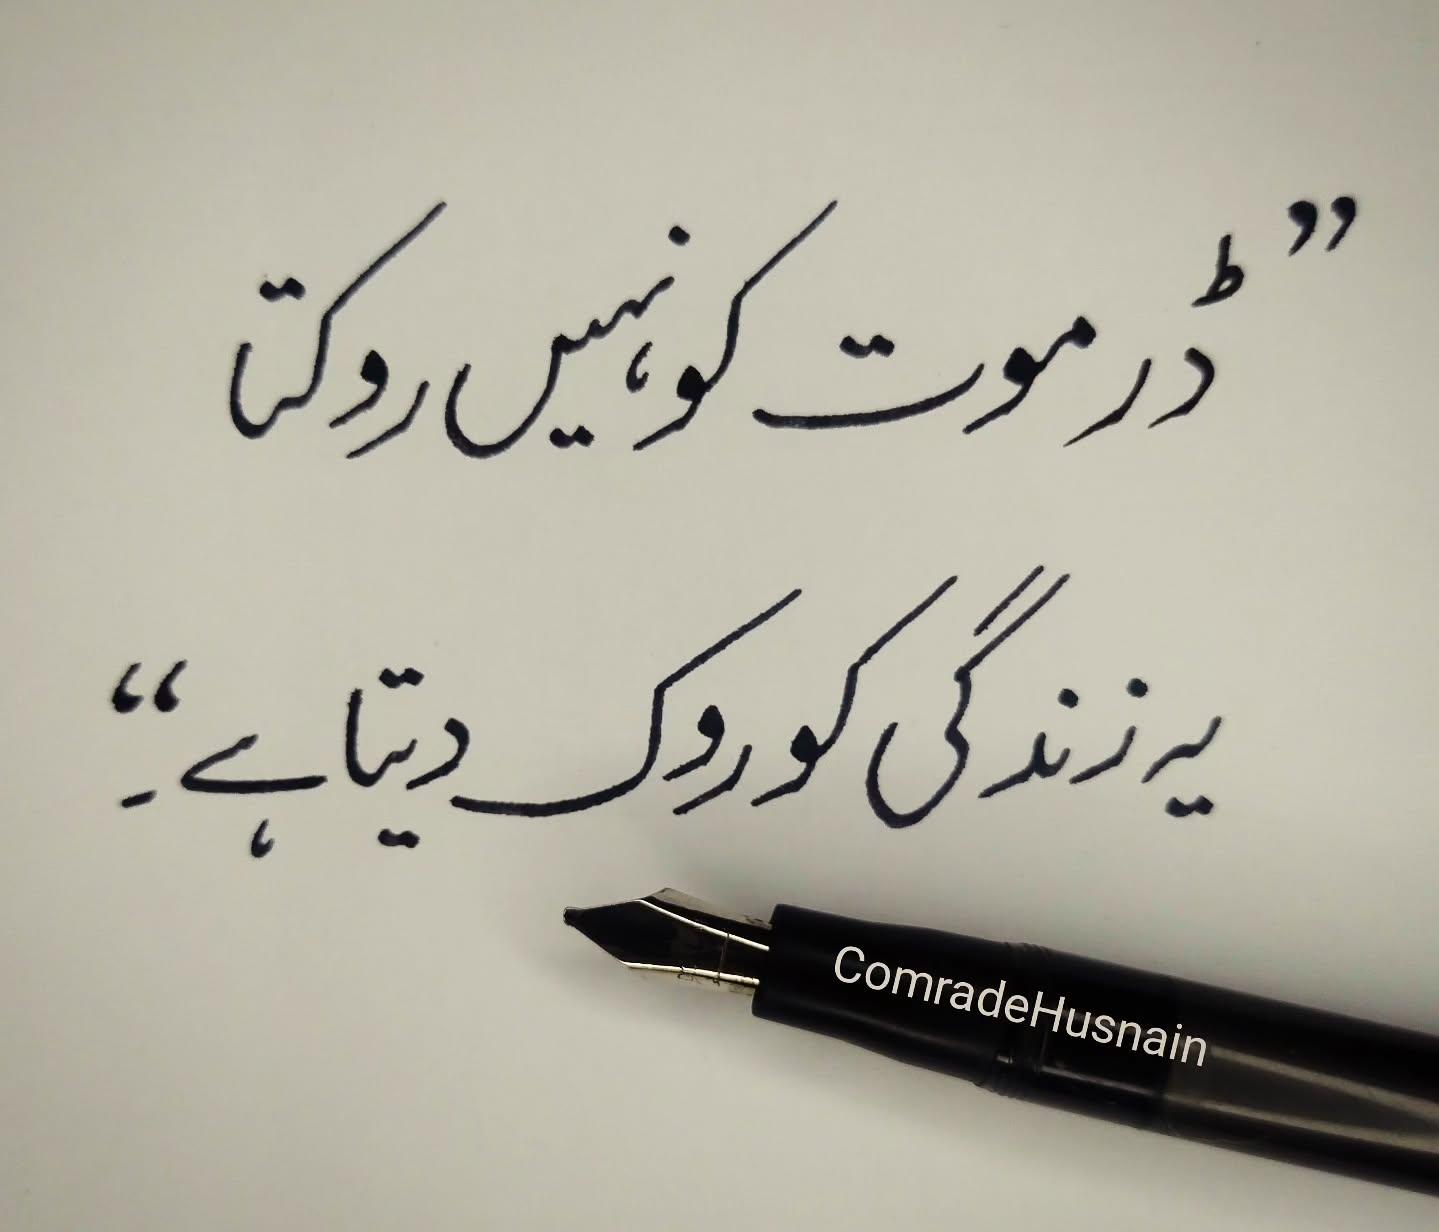 ”ڈر موت کو نہیں روکتا
یہ زندگی کو روک دیتا ہے۔“
ComradeHusnain